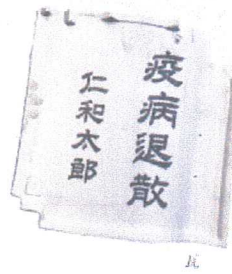 疫病退散
仁和太郎